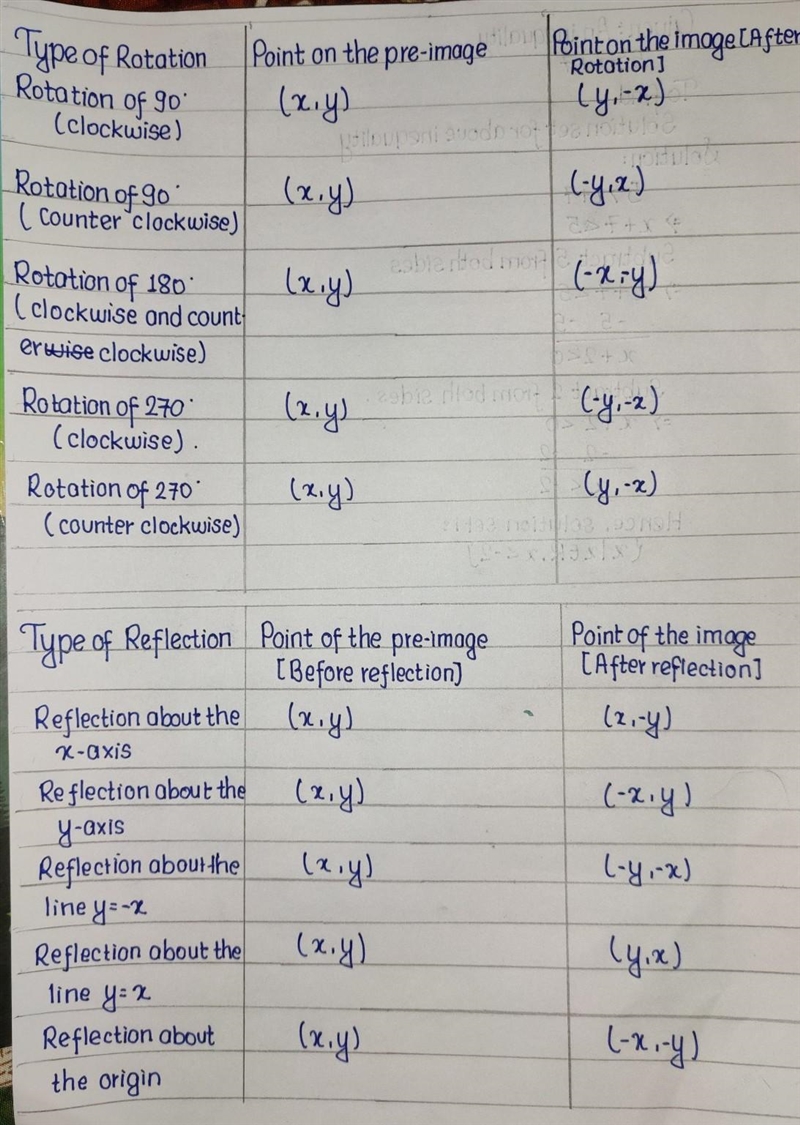 Type of Rotation Point on the pre-image Point on the image [After
Rotation]
Rotation of 90° (x,y) (y,-x)
(clockwise)
Rotation of 90° (x,y) (-y,x)
( Counter clockwise)
Rotation of 180° (x,y) (-x,-y)
(clockwise and count-
erwise clockwise)
Rotation of 270° (x,y) (-y,-x)
(clockwise).
Rotation of 270° (x,y) (y,-x)
(counter clockwise)
Type of Reflection Point of the pre-image Point of the image
[Before reflection] [After reflection]
Reflection about the (x,y) (x,-y)
x-axis
Reflection about the (x,y) (-x,y)
y-axis
Reflection about the (x,y) (-y,-x)
line y=-x
Reflection about the (x,y) (y,x)
line y=x
Reflection about (x,y) (-x,-y)
the origin